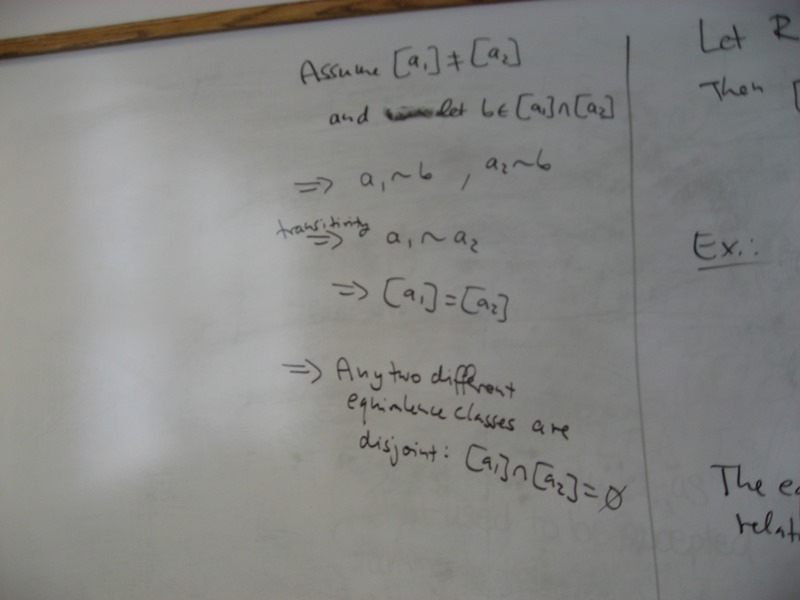 Assume [a₁] ≠ [a₂]
and let b ∈ [a₁] ∩ [a₂]
⇒ a₁ ~ b , a₂ ~ b
transitivity
⇒ a₁ ~ a₂
⇒ [a₁] = [a₂]
⇒ Any two different
equivalence classes are
disjoint: [a₁] ∩ [a₂] = ∅
Let R
Then [
Ex.:
The eq
relati
used to be accepted